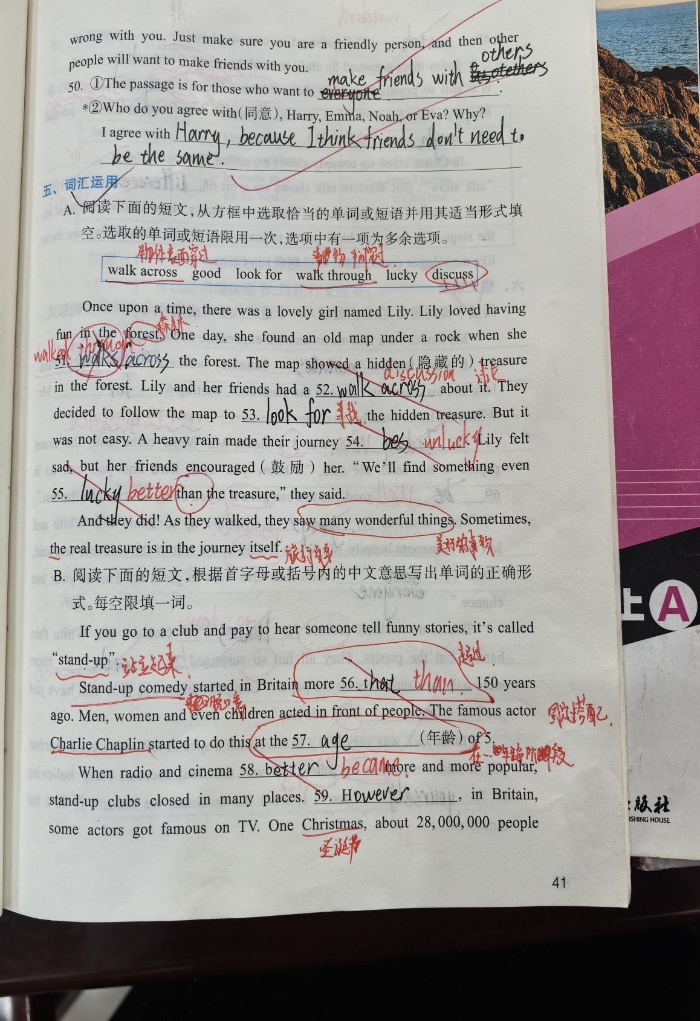 wrong with you. Just make sure you are a friendly person, and then other
people will want to make friends with you.
others
50. ①The passage is for those who want to make friends with
everyone
*②Who do you agree with(同意), Harry, Emma, Noah, or Eva? Why?
I agree with Harry, because I think friends don't need to
be the same.
五、词汇运用
A. 阅读下面的短文,从方框中选取恰当的单词或短语并用其适当形式填
空。选取的单词或短语限用一次,选项中有一项为多余选项。
物体表面穿过
walk across good look for walk through lucky discuss
Once upon a time, there was a lovely girl named Lily. Lily loved having
森林
fun in the forest. One day, she found an old map under a rock when she
walked through
51. walks across the forest. The map showed a hidden(隐藏的) treasure
discussion
in the forest. Lily and her friends had a 52. walk across about it. They
decided to follow the map to 53. look for 寻找 the hidden treasure. But it
was not easy. A heavy rain made their journey 54. bes unlucky. Lily felt
sad, but her friends encouraged(鼓励) her. “We’ll find something even
55. lucky better than the treasure,” they said.
And they did! As they walked, they saw many wonderful things. Sometimes,
the real treasure is in the journey itself.
美好的事物
B. 阅读下面的短文,根据首字母或括号内的中文意思写出单词的正确形
式。每空限填一词。
If you go to a club and pay to hear someone tell funny stories, it’s called
“stand-up”. 站立起来
超过
Stand-up comedy started in Britain more 56. that than 150 years
ago. Men, women and even children acted in front of people. The famous actor
固定搭配
Charlie Chaplin started to do this at the 57. age (年龄) of 5.
When radio and cinema 58. better became more and more popular,
stand-up clubs closed in many places. 59. However, in Britain,
some actors got famous on TV. One Christmas, about 28,000,000 people
圣诞节
41
上 A
出版社
SHING HOUSE